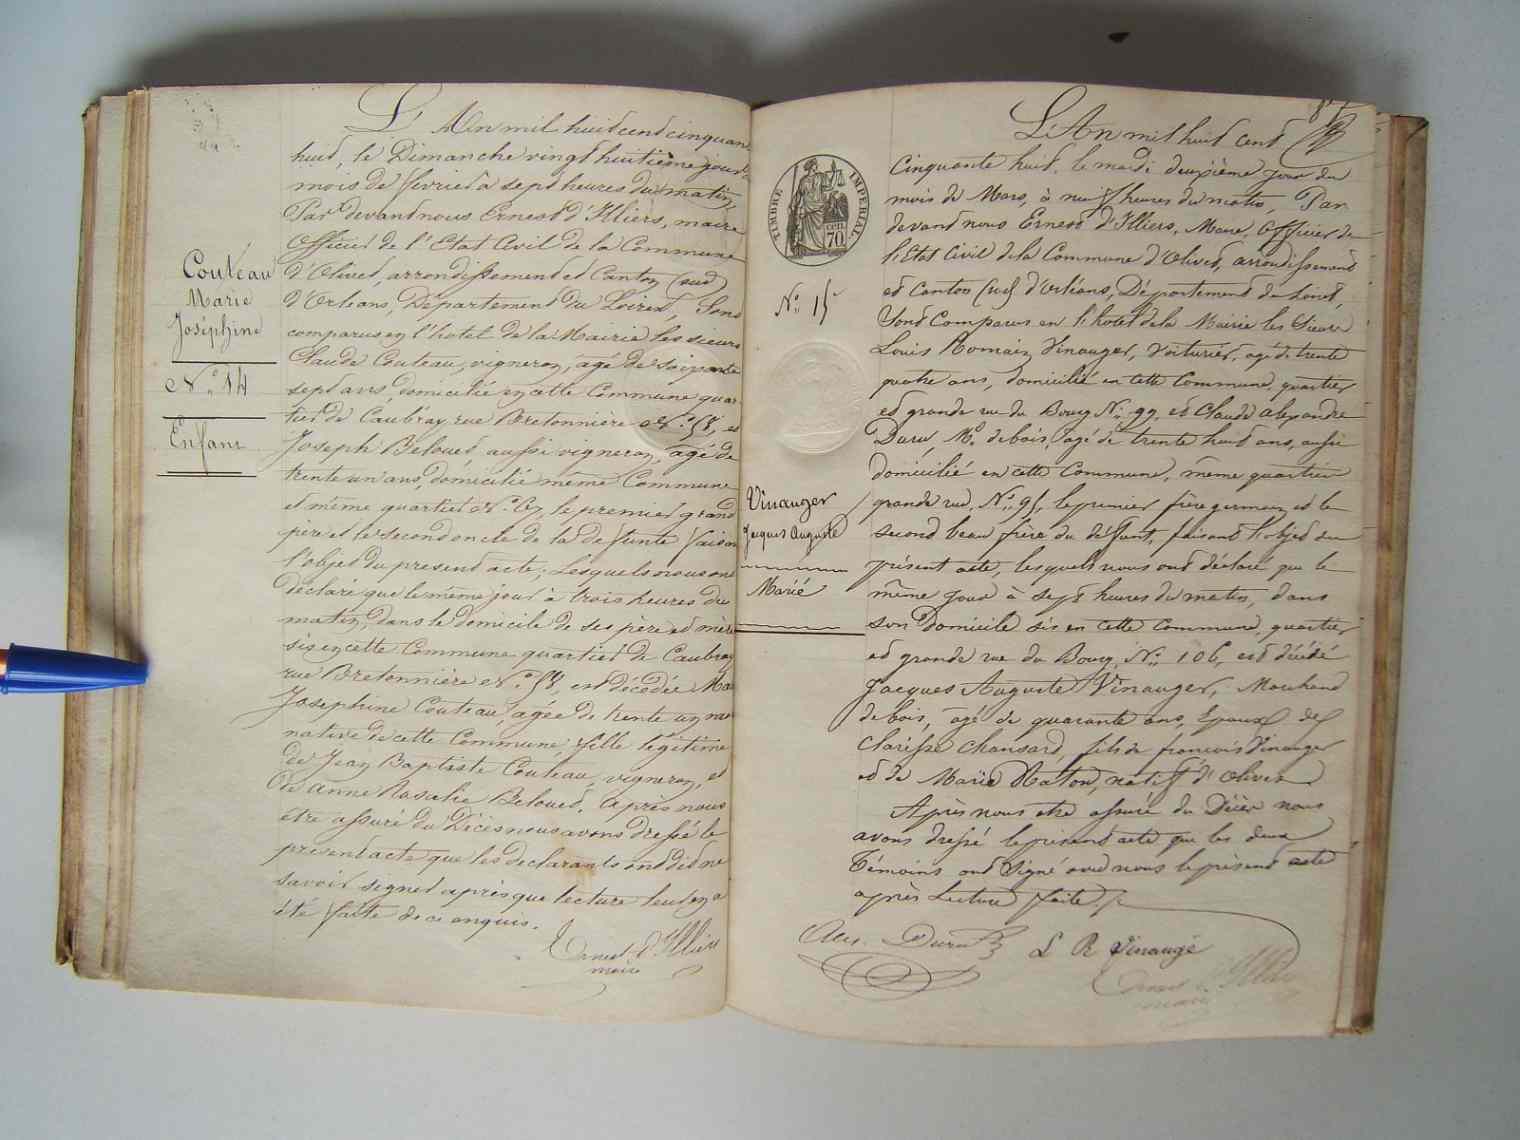 Couteau
Marie
Joséphine
N.o 14
Enfant
L'An mil huit cent cinquan
huit, le Dimanche vingt huitième jour
mois de fevrier à sept heures du matin
Par devant nous Ernest d'Illiers, maire
Officier de l'Etat Civil de la Commune
d'Olivet, arrondissement et Canton (sud)
d'Orleans, Département du Loiret, Sont
comparus en l'hotel de la Mairie les sieurs
Claude Couteau, vigneron, âgé de soixante
sept ans, domicilié en cette Commune quar
tier de Caubray, rue Bretonnière N.o 58, et
Joseph Beloued aussi vigneron, âgé de
trente un ans, domicilié même Commune
et même quartier N.o le premier grand
père et le second oncle de la défunte faisan
l'objet du present acte; Lesquels nous ont
déclaré que le même jour à trois heures du
matin, dans le domicile de ses père et mère
sis en cette Commune quartier de Caubray
rue Bretonnière N.o 58, est décédée Ma
Josephine Couteau, âgée de trente un
native de cette Commune, fille légitime
de Jean Baptiste Couteau, vigneron, et
De Anne Rosalie Beloued. Après nous
être assuré du Décès nous avons dressé le
présent acte que les declarants ont dit ne
savoir signer après que lecture leur en a
été faite de ce enquis.
Ernest d'Illiers
maire
87
TIMBRE IMPERIAL
70
N.o 15
Vinauger
Jacques Auguste
Marié
L'An mil huit cent
Cinquante huit, le mardi deuxième jour du
mois de Mars, à neuf heures du matin, Par
devant nous Ernest d'Illiers, Maire, Officier de
l'Etat Civil de la Commune d'Olivet, arrondissement
et Canton (sud) d'Orléans, Département du Loiret,
Sont Comparus en l'hotel de la Mairie les Sieurs
Louis Romain Vinauger, Voiturier, âgé de trente
quatre ans, domicilié en cette Commune, quartier
et grande rue du Bourg N.o 99, et Claude Alexandre
Duru, Md. de bois, âgé de trente huit ans, aussi
domicilié en cette Commune, même quartier
grande rue, N.o 95, le premier frère germain et le
second beau frère du défunt, faisant l'objet du
présent acte, lesquels nous ont déclaré que le
même jour à sept heures du matin, dans
son Domicile sis en cette Commune, quartier
et grande rue du Bourg, N.o 106, est décédé
Jacques Auguste Vinauger, Marchand
de bois, âgé de quarante ans, Epoux de
Clarisse Chansard, fils de francois Vinauger
et de Marie Naton, natif d'Olivet
Après nous être assuré du Décès nous
avons dressé le présent acte que les deux
Témoins ont Signé avec nous le présent acte
après Lecture faite
Alex. Duru L R Vinaugé
Ernest d'Illiers
maire